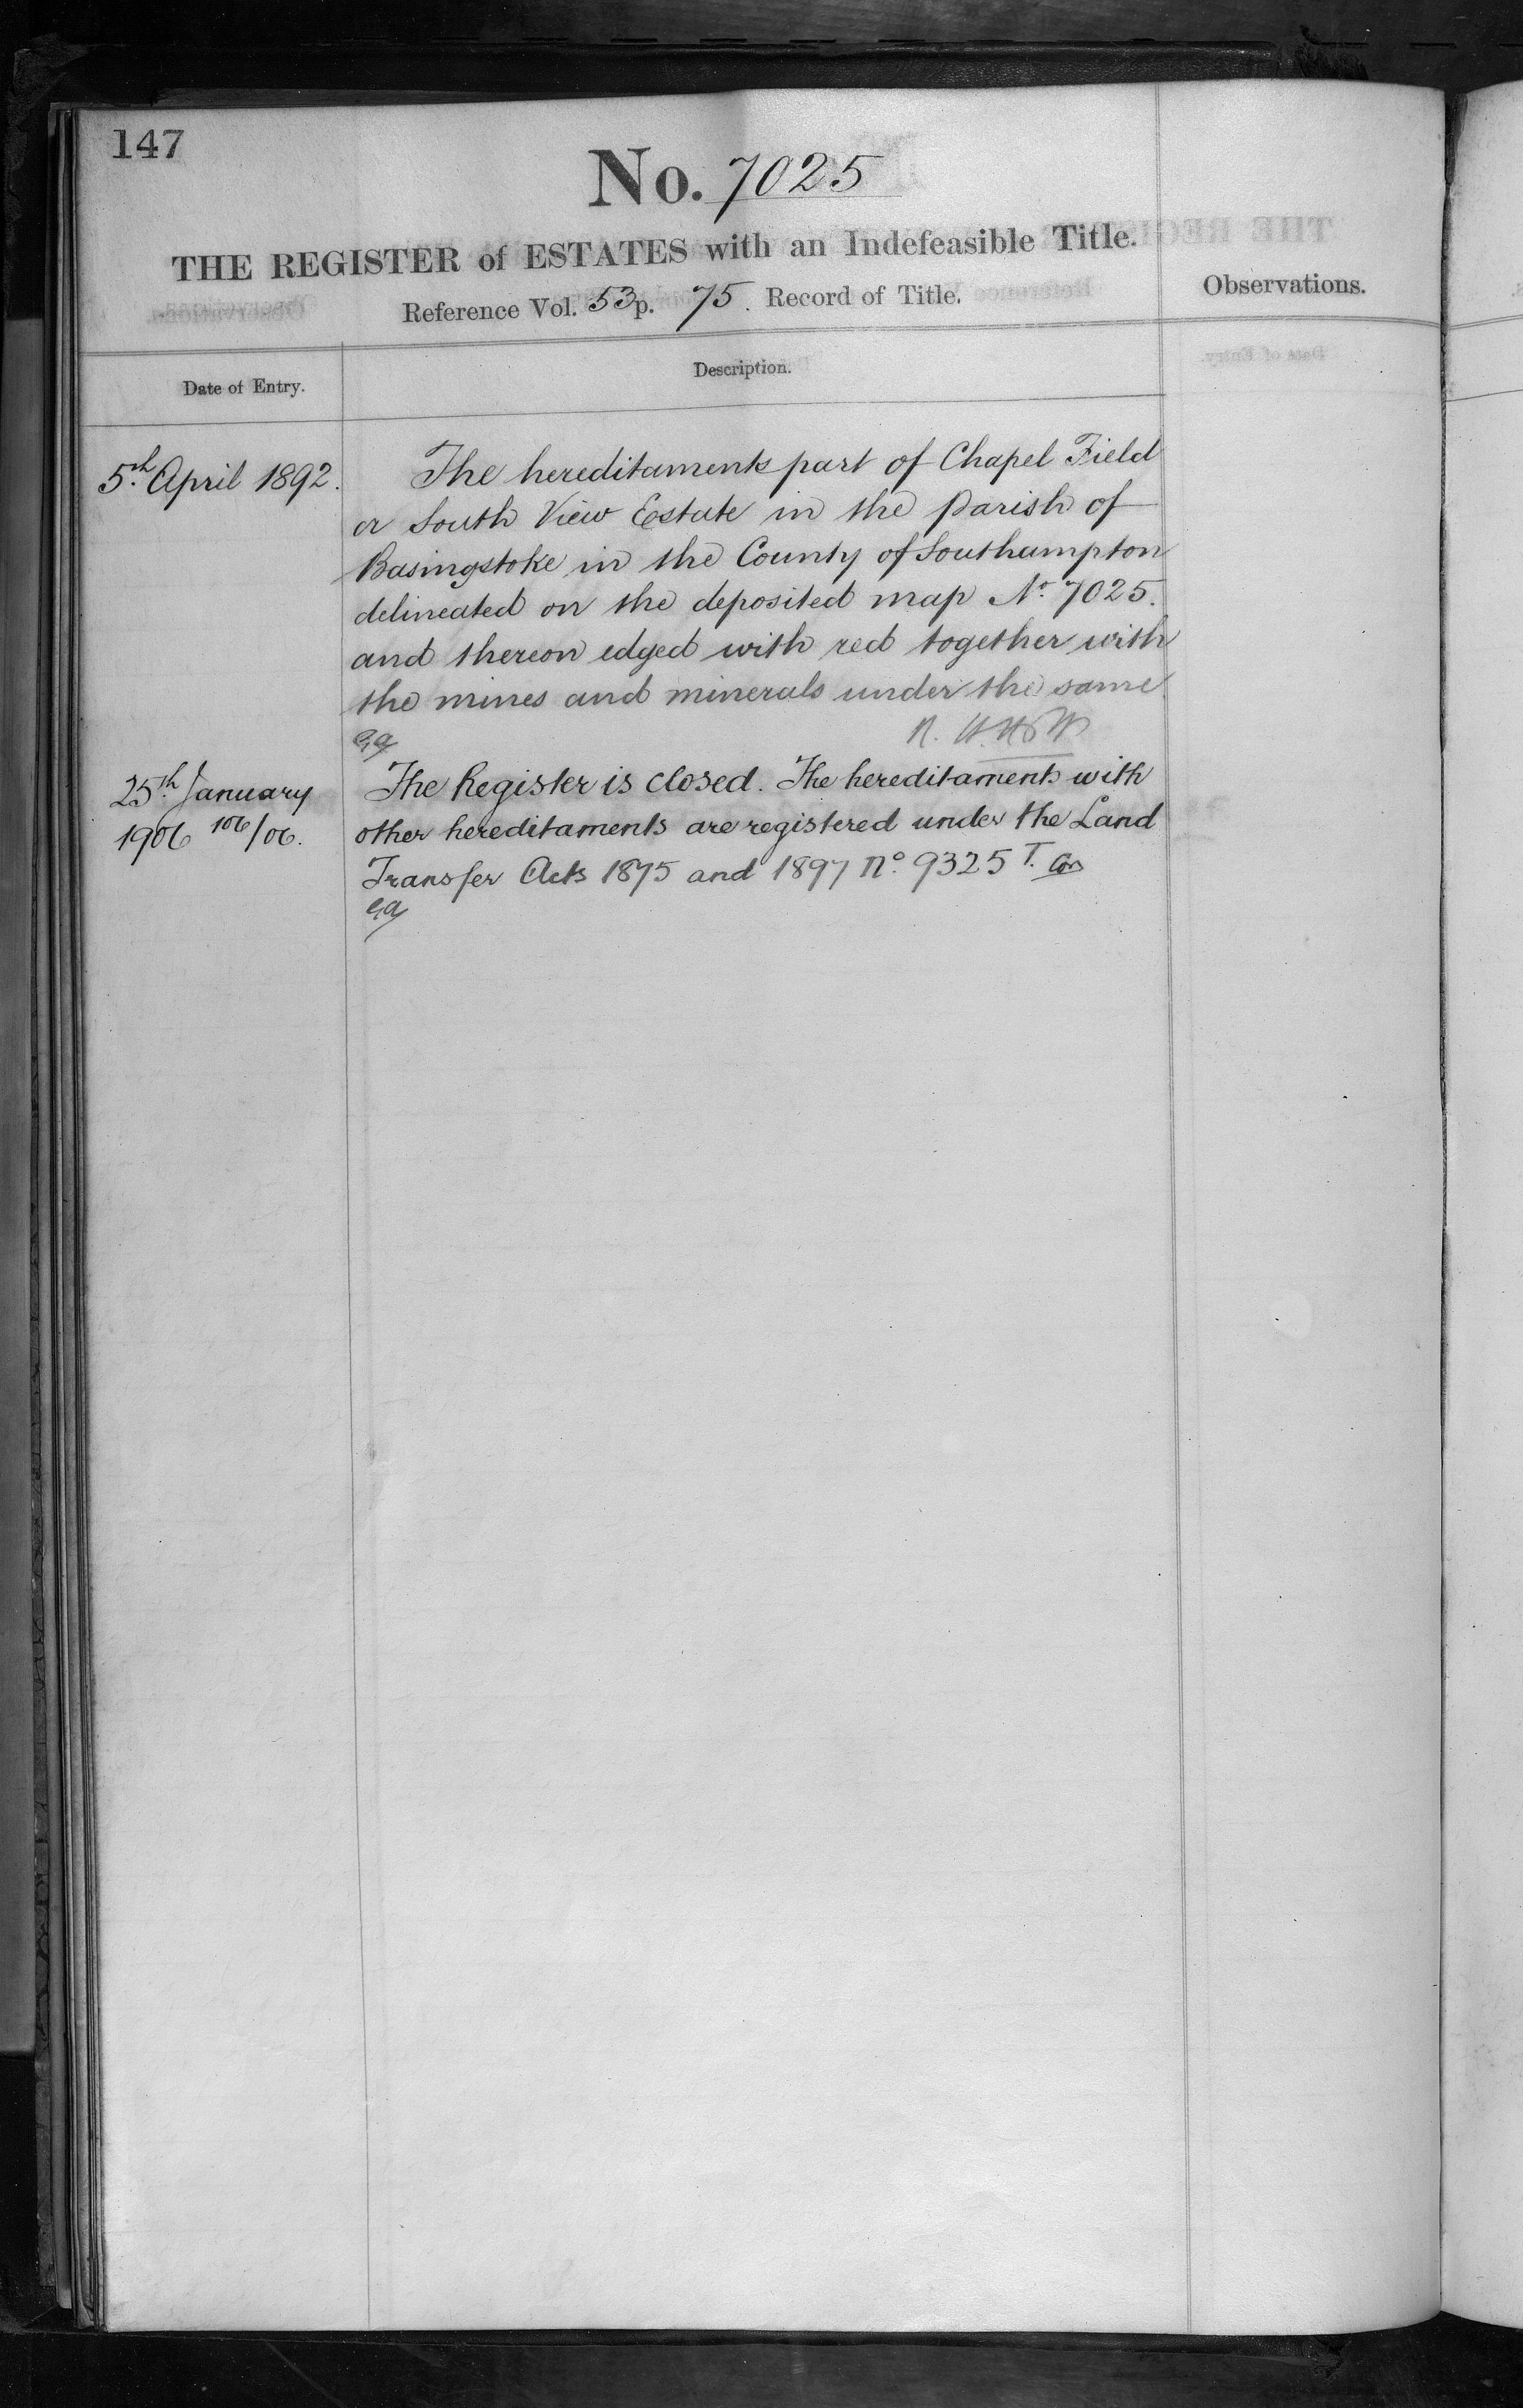 147
No. 7025
THE REGISTER of ESTATES with an Indefeasible Title.
Reference Vol. 53 p. 75. Record of Title.
Observations.
Date of Entry.
Description.
5th April 1892.
The hereditaments part of Chapel Field
or South View Estate in the parish of
Basingstoke in the County of Southampton
delineated on the deposited map No. 7025.
and thereon edged with red together with
the mines and minerals under the same
25th January
1906 106/06.
The Register is closed. The hereditaments with
other hereditaments are registered under the Land
Transfer Acts 1875 and 1897 No. 9325 T.